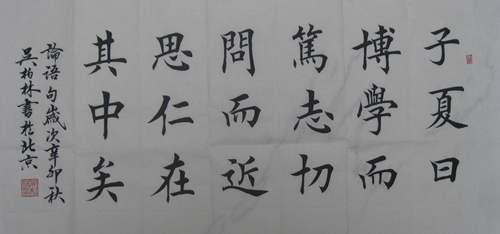 子夏曰
博學而
篤志切
問而近
思仁在
其中矣
論語句歲次辛卯秋
吳柏林書於北京